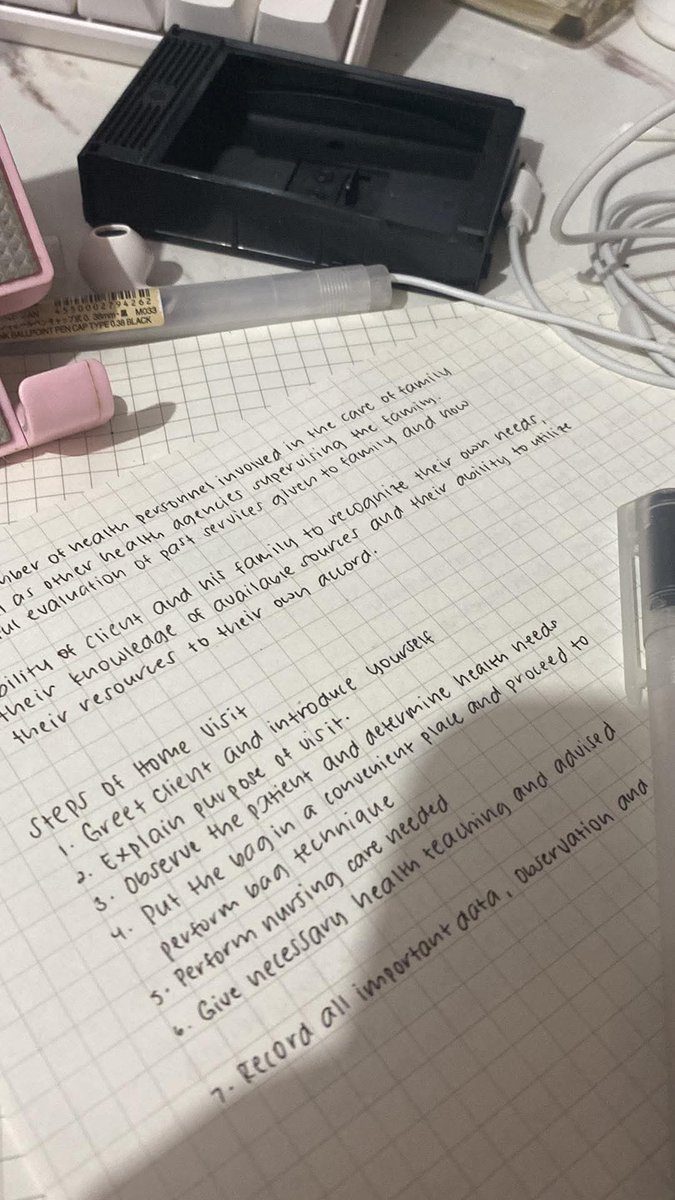 4550002794262
0.38mm・黒 M033
BALLPOINT PEN CAP TYPE 0.38 BLACK
of health personnel involved in the care of family
as other health agencies supervising the family.
evaluation of past services given to family and how
of client and his family to recognize their own needs,
their knowledge of available sources and their ability to utilize
their resources to their own accord.
Steps of Home Visit
1. Greet client and introduce yourself
2. Explain purpose of visit.
3. Observe the patient and determine health needs
4. Put the bag in a convenient place and proceed to
perform bag technique
5. Perform nursing care needed
6. Give necessary health teaching and advised
7. Record all important data, observation and